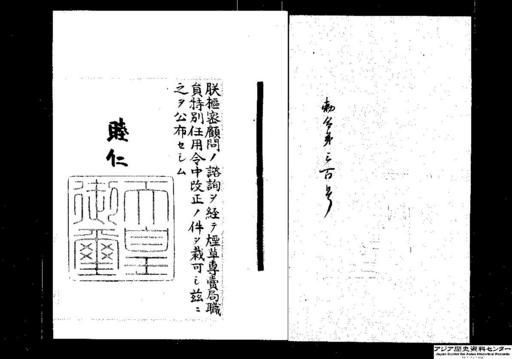 勅令第三百号
朕枢密顧問ノ諮詢ヲ経テ煙草専賣局職
員特別任用令中改正ノ件ヲ裁可シ茲ニ
之ヲ公布セシム
睦仁
天皇
御璽
アジア歴史資料センター
Japan Center for Asian Historical Records